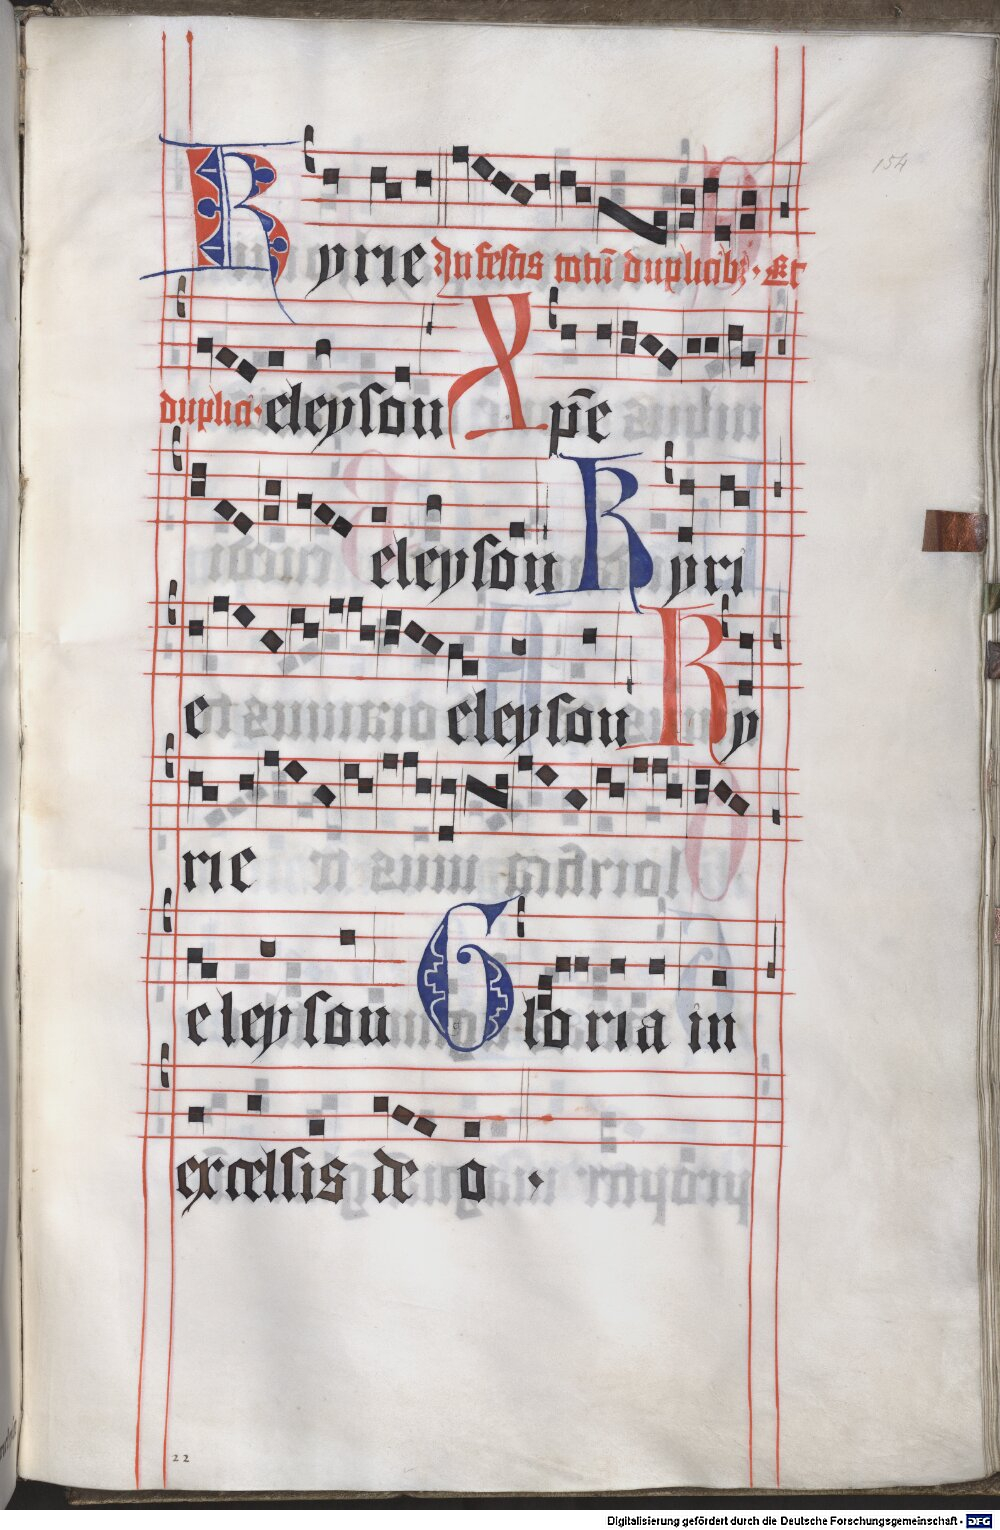 154
Kyrie In festis totū duplicibꝫ · Et
duplici · eleyson Xp̄e
eleyson Kyri
e eleyson Ky
rie
eleyson Gloria in
excelsis deo ·
22
Digitalisierung gefördert durch die Deutsche Forschungsgemeinschaft - DFG